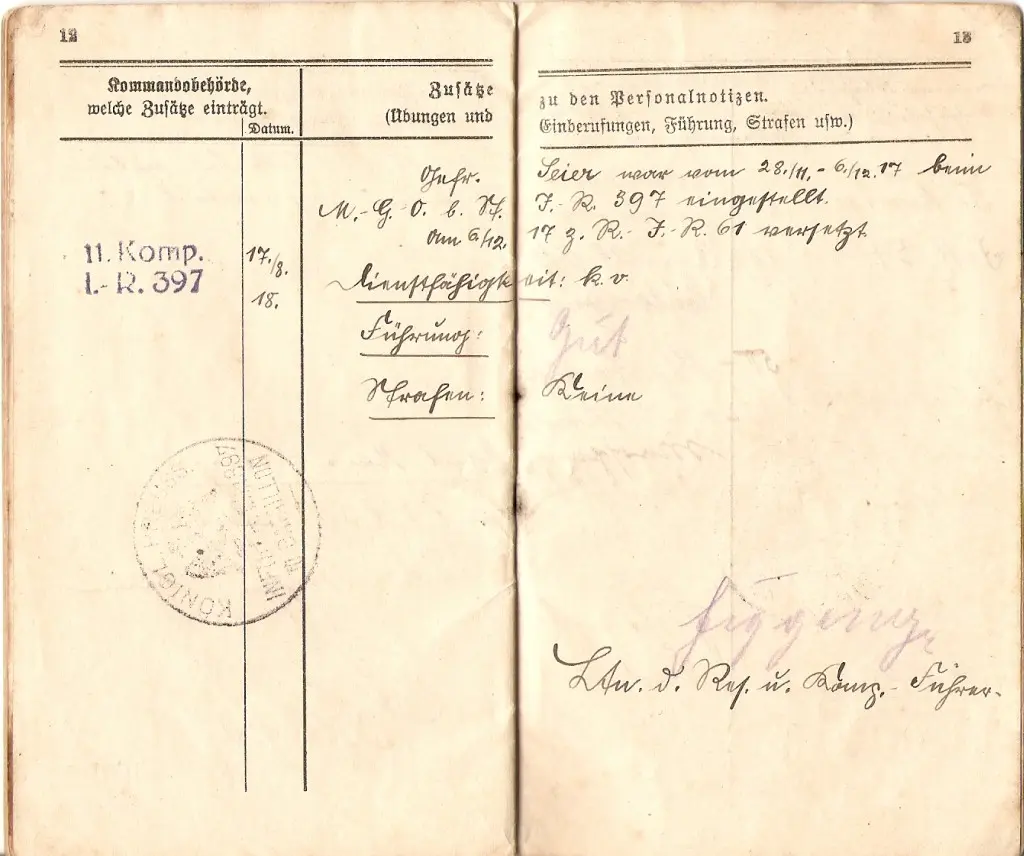 12
13
Kommandobehörde,
welche Zusätze einträgt.
Datum.
Zusätze zu den Personalnotizen.
(Übungen und Einberufungen, Führung, Strafen usw.)
Gefr. Seier war vom 28./11. - 6./12.17 beim
M.-G.-O. b. St. I.-R. 397 eingestellt.
Am 6./12. 17 z. R.-I.-R. 61 versetzt
11. Komp.
I.-R. 397
17./8.
18.
Dienstfähigkeit: k. v.
Führung: Gut
Strafen: Keine
KÖNIGL. PREUSS.
BATAILLON
INFTR.
Ltn. d. Res. u. Komp.-Führer.